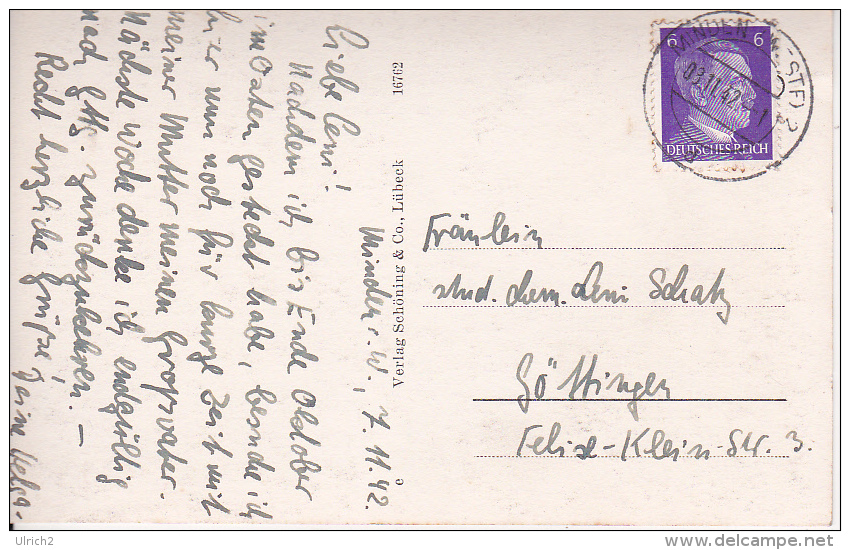 Minden i. W., 7. 11. 42.
Liebe Leni!
Nachdem ich bis Ende Oktober
im Osten gesteckt habe, besuche ich
hier nun noch für kurze Zeit mit
meiner Mutter meinen Großvater.
Nächste Woche denke ich endgültig
nach Gttg. zurückzukehren. —
Recht herzliche Grüße!
Deine Helga.
Verlag Schöning & Co., Lübeck 16762
e
6 6
DEUTSCHES REICH
MINDEN (WESTF) 2
Fräulein
stud. chem. Leni Schatz
Göttingen
Felix-Klein-Str. 3.
Ulrich2
http://www.delcampe.net